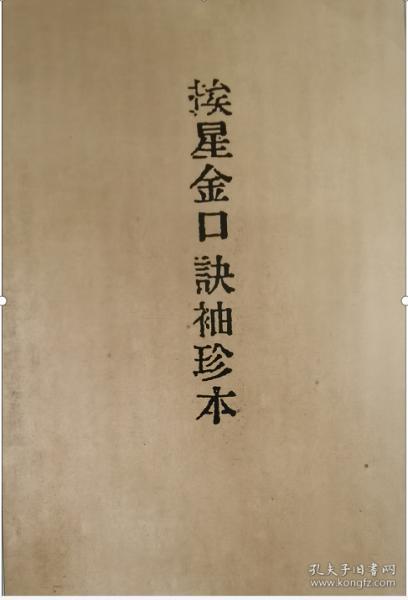 挨星金口訣袖珍本
孔夫子旧书网
www.kongfz.com